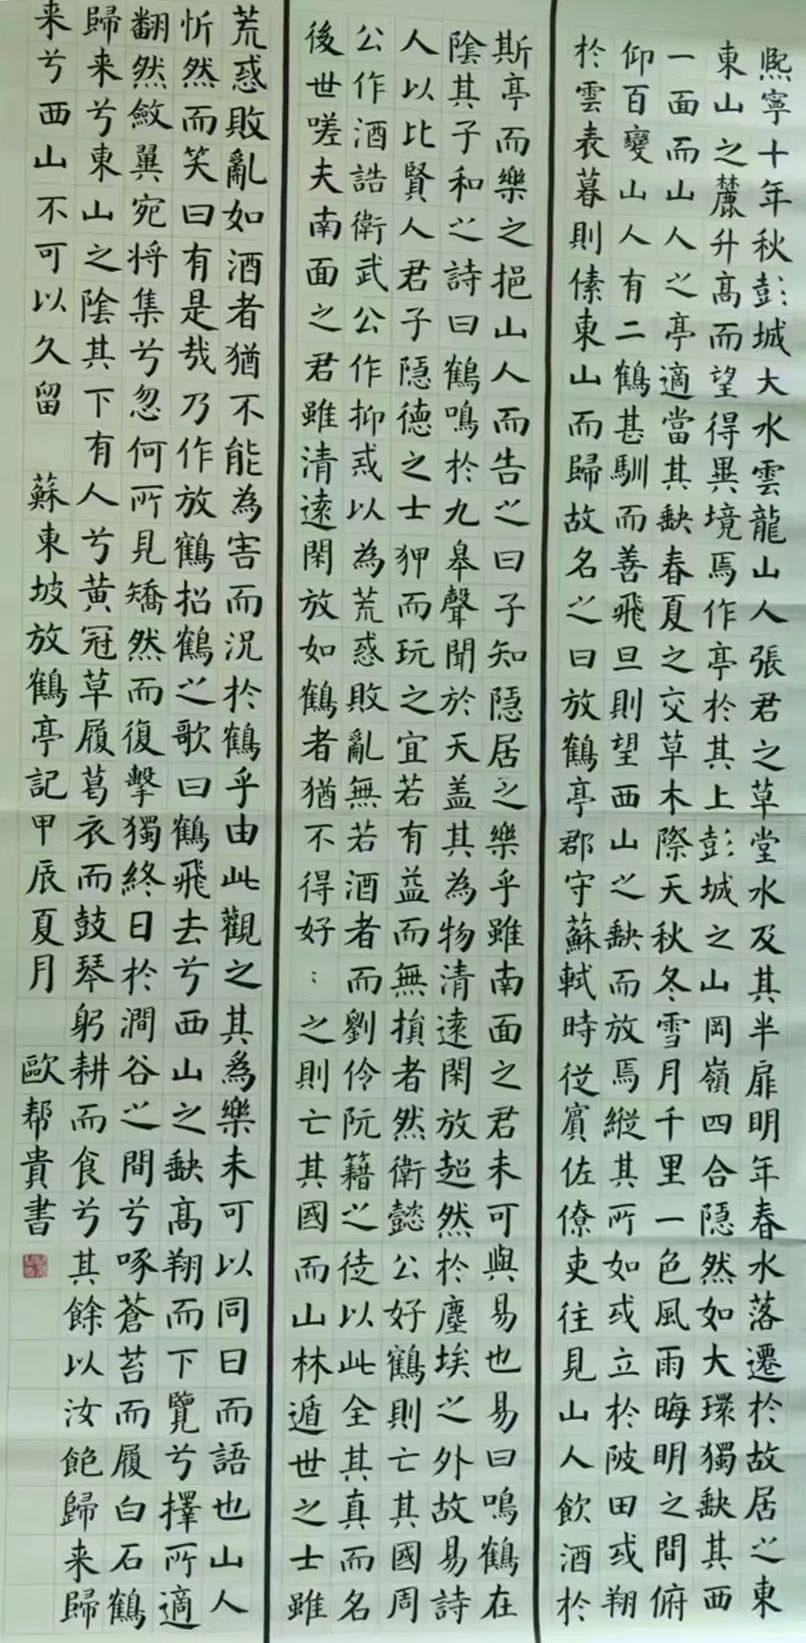 熙寧十年秋彭城大水雲龍山人張君之草堂水及其半扉明年春水落遷於故居之東
東山之麓升高而望得異境焉作亭於其上彭城之山岡嶺四合隱然如大環獨缺其西
一面而山人之亭適當其缺春夏之交草木際天秋冬雪月千里一色風雨晦明之間俯
仰百變山人有二鶴甚馴而善飛旦則望西山之缺而放焉縱其所如或立於陂田或翔
於雲表暮則傃東山而歸故名之曰放鶴亭郡守蘇軾時從賓佐僚吏往見山人飲酒於
斯亭而樂之挹山人而告之曰子知隱居之樂乎雖南面之君未可與易也易曰鳴鶴在
陰其子和之詩曰鶴鳴於九皋聲聞於天盖其為物清遠閑放超然於塵埃之外故易詩
人以比賢人君子隱德之士狎而玩之宜若有益而無損者然衛懿公好鶴則亡其國周
公作酒誥衛武公作抑戒以為荒惑敗亂無若酒者而劉伶阮籍之徒以此全其真而名
後世嗟夫南面之君雖清遠閑放如鶴者猶不得好：之則亡其國而山林遁世之士雖
荒惑敗亂如酒者猶不能為害而況於鶴乎由此觀之其為樂未可以同日而語也山人
忻然而笑曰有是哉乃作放鶴招鶴之歌曰鶴飛去兮西山之缺高翔而下覽兮擇所適
翻然斂翼宛將集兮忽何所見矯然而復擊獨終日於澗谷之間兮啄蒼苔而履白石鶴
歸来兮東山之陰其下有人兮黃冠草履葛衣而鼓琴躬耕而食兮其餘以汝飽歸来歸
来兮西山不可以久留 蘇東坡放鶴亭記甲辰夏月 歐帮貴書